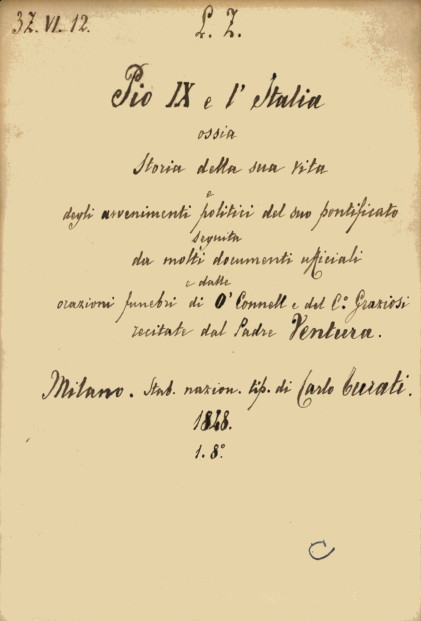 37. VI. 12.
L. Z.
Pio IX e l' Italia
ossia
Storia della sua vita
e
degli avvenimenti politici del suo pontificato
seguita
da molti documenti ufficiali
e dalle
orazioni funebri di O' Connell e del C.º Graziosi
recitate dal Padre Ventura.
Milano. Stab. nazion. tip. di Carlo Turati.
1848.
1. 8º.
C